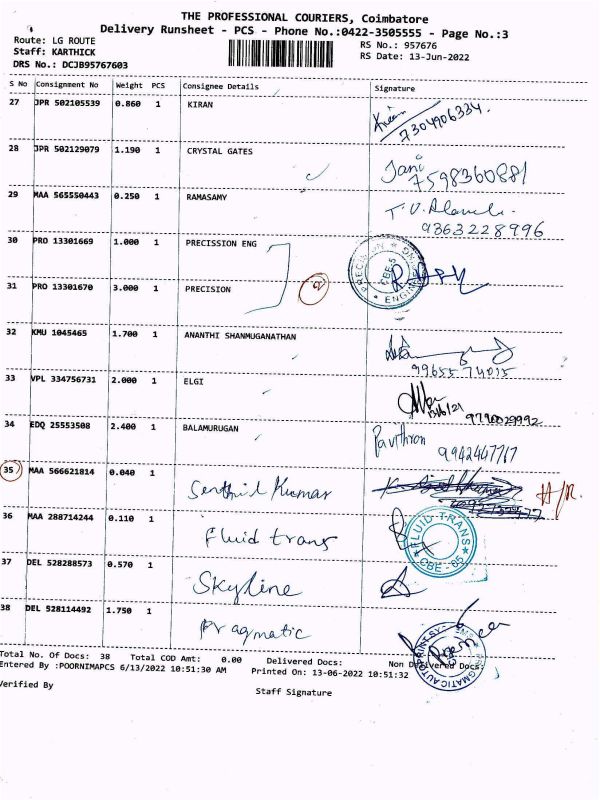 THE PROFESSIONAL COURIERS, Coimbatore
Delivery Runsheet - PCS - Phone No.:0422-3505555 - Page No.:3
Route: LG ROUTE
RS No.: 957676
Staff: KARTHICK
RS Date: 13-Jun-2022
DRS No.: DCJB95767603
S No Consignment No Weight PCS Consignee Details Signature
27 JPR 502105539 0.860 1 KIRAN
7304906334
28 JPR 502129079 1.190 1 CRYSTAL GATES
Jani
7598360881
29 MAA 565550443 0.250 1 RAMASAMY
9363228996
30 PRO 13301669 1.000 1 PRECISSION ENG
31 PRO 13301670 3.000 1 PRECISION
32 KMU 1045465 1.700 1 ANANTHI SHANMUGANATHAN
9965574015
33 VPL 334756731 2.000 1 ELGI
34 EDQ 25553508 2.400 1 BALAMURUGAN
Pavithran
35 MAA 566621814 0.040 1 Senthil Kumar
36 MAA 288714244 0.110 1 Fluid trans
FLUID TRANS
CBE-65
37 DEL 528288573 0.570 1 Skyline
38 DEL 528114492 1.750 1 Pragmatic
Total No. Of Docs: 38 Total COD Amt: 0.00 Delivered Docs: Non Delivered Docs:
Entered By :POORNIMAPCS 6/13/2022 10:51:30 AM Printed On: 13-06-2022 10:51:32
Verified By
Staff Signature